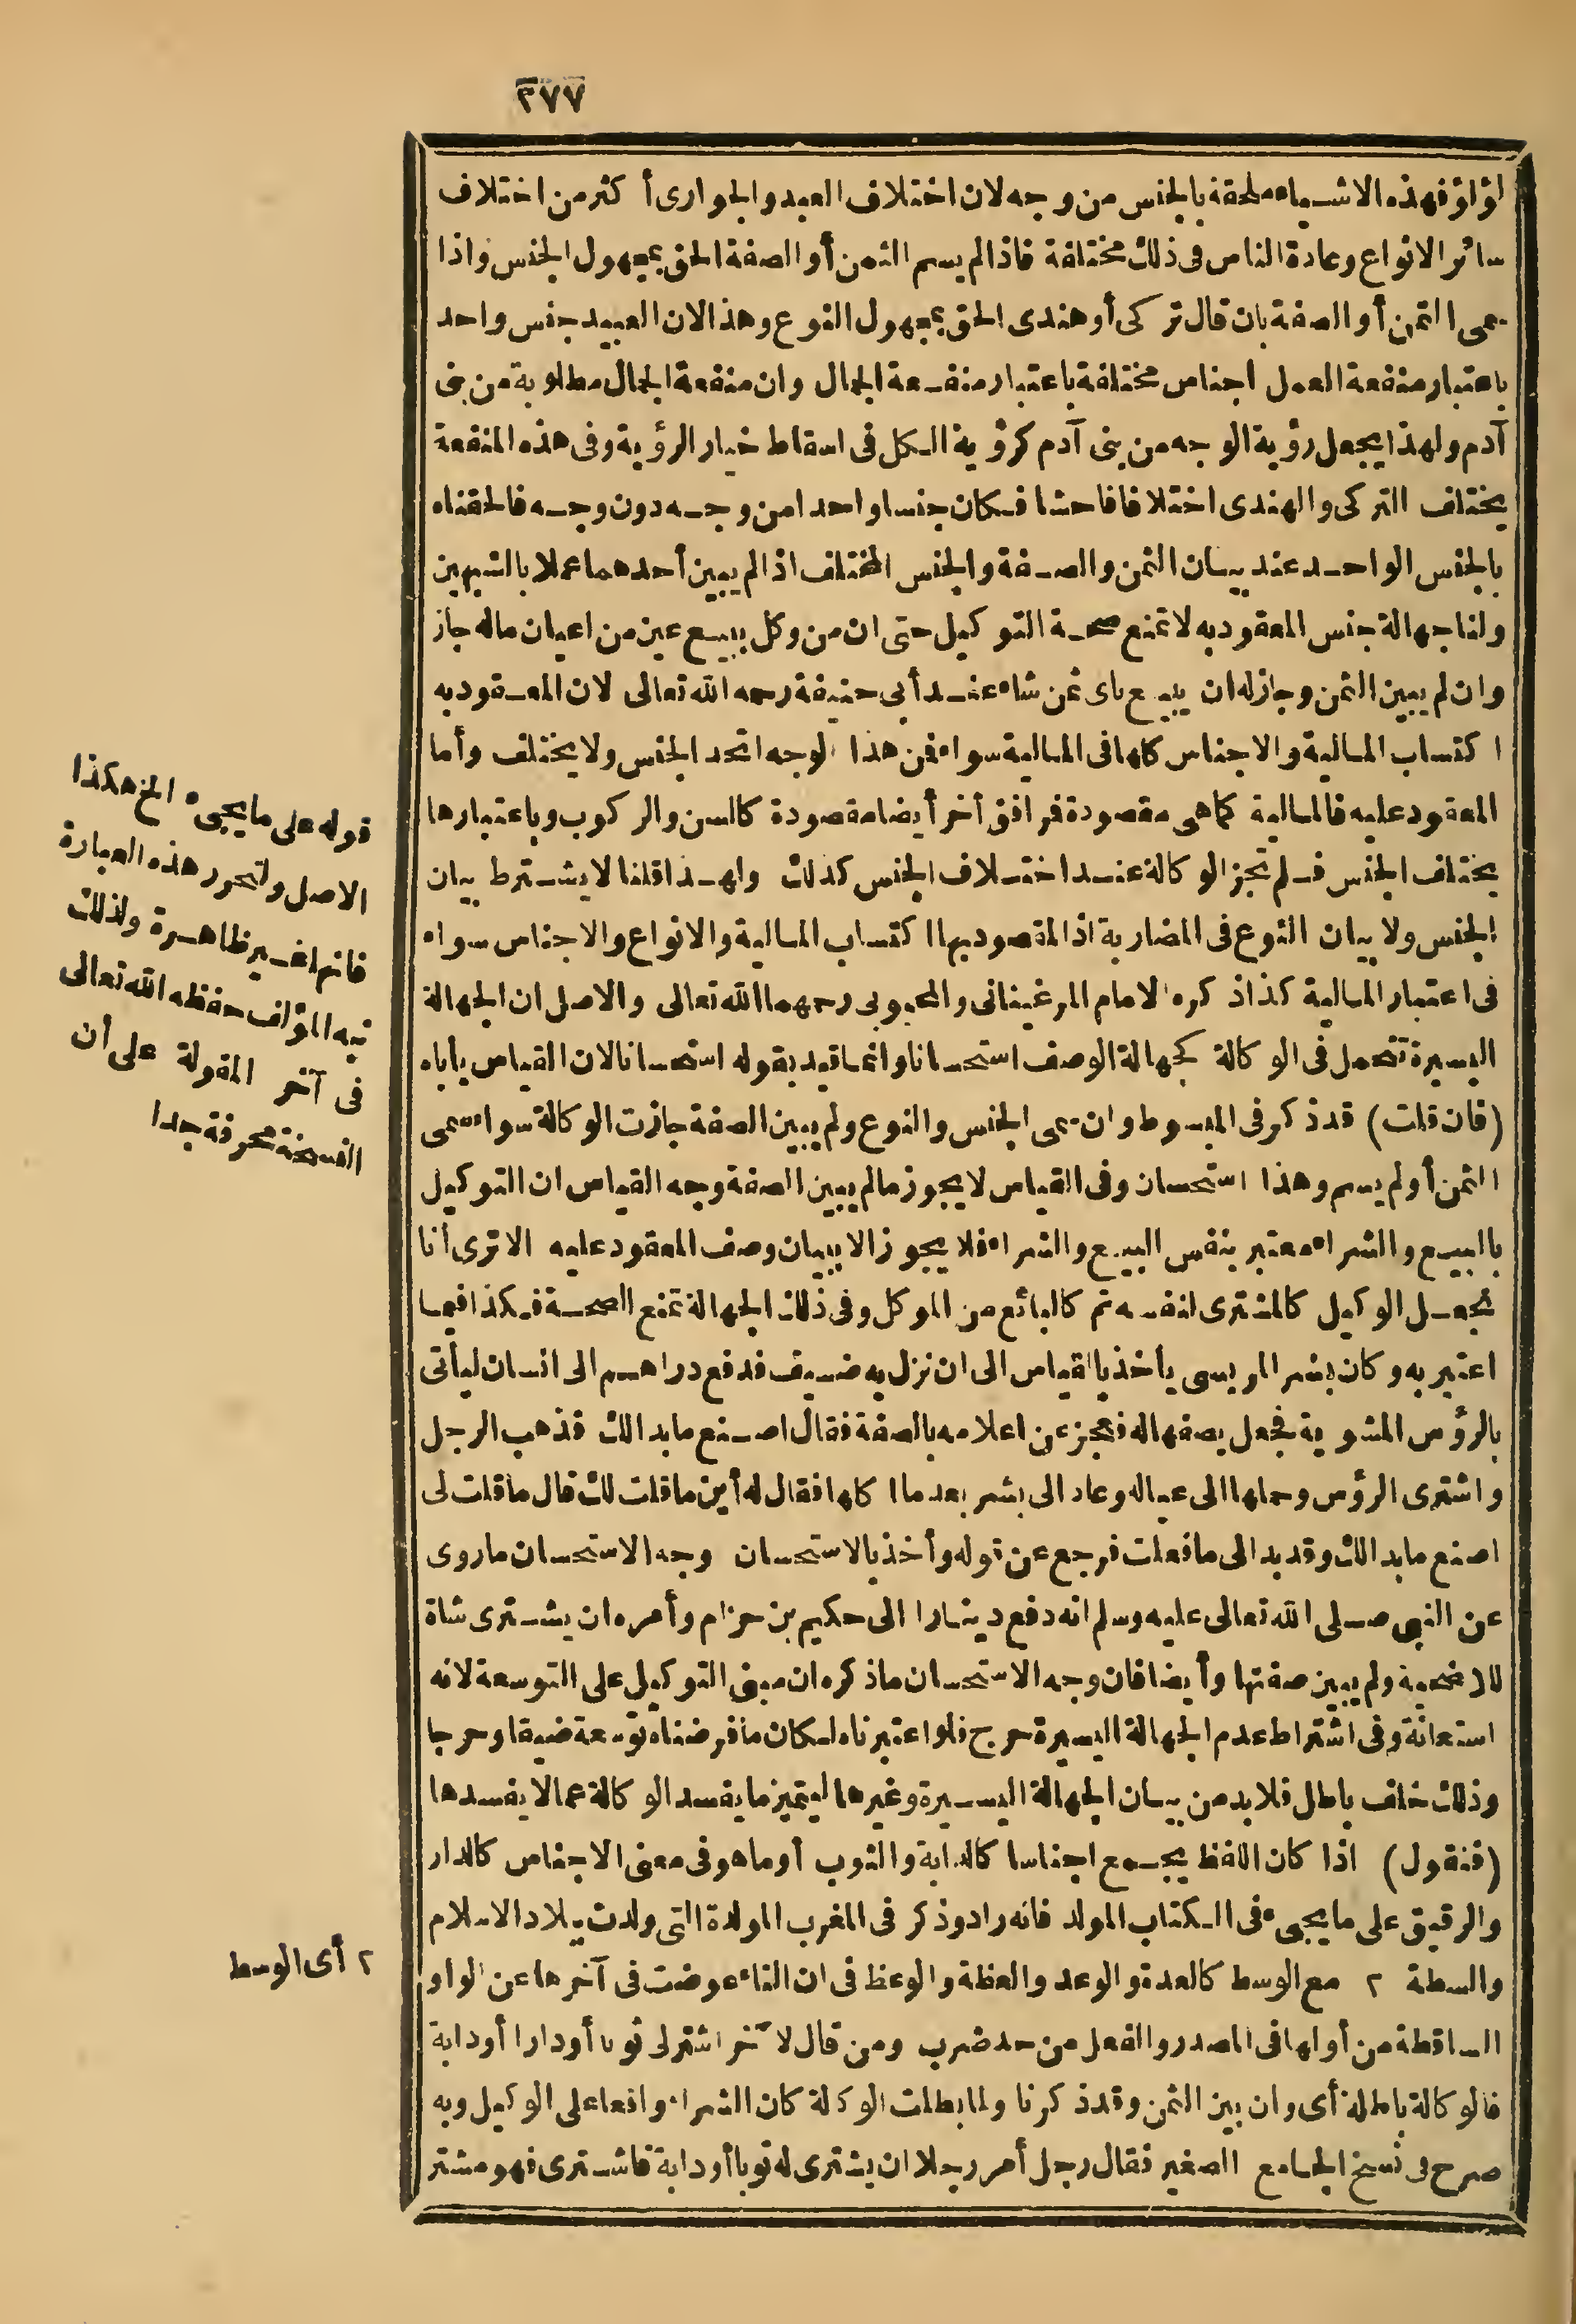 ٢٧٧
لؤلؤ فهذه الاشياء ملحقة بالجنس من وجه لان اختلاف العبد والجوارى أكثر من اختلاف
سائر الانواع وعادة الناس فى ذلك مختلفة فاذا لم يسم الثمن أو الصفة الحق بمجهول الجنس واذا
سمى الثمن أو الصفة بان قال تركى أو هندى الحق بمجهول النوع وهذا لان العبيد جنس واحد
باعتبار منفعة العمل اجناس مختلفة باعتبار منفعة الجمال وان منفعة الجمال مطلوبة من بنى
آدم ولهذا يجعل رؤية الوجه من بنى آدم كرؤية الكل فى اسقاط خيار الرؤية وفى هذه المنفعة
يختلف التركى والهندى اختلافا فاحشا فكان جنسا واحدا من وجه دون وجه فالحقناه
بالجنس الواحد عند بيان الثمن والصفة والجنس المختلف اذا لم يبين أحدهما عملا بالشبهين
ولنا جهالة جنس المعقود به لا تمنع صحة التوكيل حتى ان من وكل ببيع عين من اعيان ماله جاز
وان لم يبين الثمن وجاز له ان يبيع باى ثمن شاء عند أبى حنيفة رحمه الله تعالى لان المعقود به
اكتساب المالية والاجناس كلها فى المالية سواء فمن هذا الوجه اتحد الجنس ولا يختلف وأما
المعقود عليه فالمالية كما هى مقصودة فمرافق أخر أيضا مقصودة كالسن والركوب وباعتبارها
يختلف الجنس فلم تجز الوكالة عند اختلاف الجنس كذلك ولهذا قلنا لا يشترط بيان
الجنس ولا بيان النوع فى المضاربة اذ المقصود بها اكتساب المالية والانواع والاجناس سواء
فى اعتبار المالية كذا ذكره الامام المرغينانى والمحبوبى رحمهما الله تعالى والاصل ان الجهالة
اليسيرة تتحمل فى الوكالة كجهالة الوصف استحسانا وانما قيد بقوله استحسانا لان القياس يأباه
(فان قلت) قد ذكر فى المبسوط وان سمى الجنس والنوع ولم يبين الصفة جازت الوكالة سواء سمى
الثمن أو لم يسم وهذا استحسان وفى القياس لا يجوز ما لم يبين الصفة وجه القياس ان التوكيل
بالبيع والشراء معتبر بنفس البيع والشراء فلا يجوز الا ببيان وصف المعقود عليه الا ترى أنا
نجعل الوكيل كالمشترى لنفسه ثم كالبائع من الموكل وفى ذلك الجهالة تمنع الصحة فكذا فيما
اعتبر به وكان بشر المريسى يأخذ بالقياس الى ان نزل به ضيف فدفع دراهم الى انسان ليأتى
بالرؤس المشوية فجعل يصفها له فعجز عن اعلامه بالصفة فقال اصنع ما بدا لك فذهب الرجل
واشترى الرؤس وحملها الى عياله وعاد الى بشر بعدما اكلها فقال له أين ما قلت لك قال ما قلت لى
اصنع ما بدا لك وقد بدا لى ما فعلت فرجع عن قوله وأخذ بالاستحسان وجه الاستحسان ما روى
عن النبى صلى الله تعالى عليه وسلم انه دفع دينارا الى حكيم بن حزام وأمره ان يشترى شاة
للاضحية ولم يبين صفتها وأيضا فان وجه الاستحسان ما ذكره ان مبنى التوكيل على التوسعة لانه
استعانة وفى اشتراط عدم الجهالة اليسيرة حرج فلو اعتبرناه لكان ما فرضناه توسعة ضيقا وحرجا
وذلك خلف باطل فلا بد من بيان الجهالة اليسيرة وغيرها ليتميز ما يفسد الوكالة عما لا يفسدها
(فنقول) اذا كان اللفظ يجمع اجناسا كالدابة والثوب أو ما هو فى معنى الاجناس كالدار
والرقيق على ما يجىء فى الكتاب المولد فانه راد وذكر فى المغرب المولدة التى ولدت ببلاد الاسلام
والسطة ٢ مع الوسط كالعدة والوعد والعظة والوعظ فى ان التاء عوضت فى آخرها عن الواو
الساقطة من أولها فى المصدر والفعل من حد ضرب ومن قال لآخر اشتر لى ثوبا أو دارا أو دابة
فالوكالة باطلة أى وان بين الثمن وقد ذكرنا ولما بطلت الوكالة كان الشراء واقعا على الوكيل وبه
صرح فى نسخ الجامع الصغير فقال رجل أمر رجلا ان يشترى له ثوبا أو دابة فاشترى فهو مشتر
قوله على ما يجىء الخ هكذا
الاصل ولتحرر هذه العبارة
فانها غير ظاهرة ولذلك
نبه المؤلف حفظه الله تعالى
فى آخر المقولة على أن
النسخة محرفة جدا
٢ أى الوسط